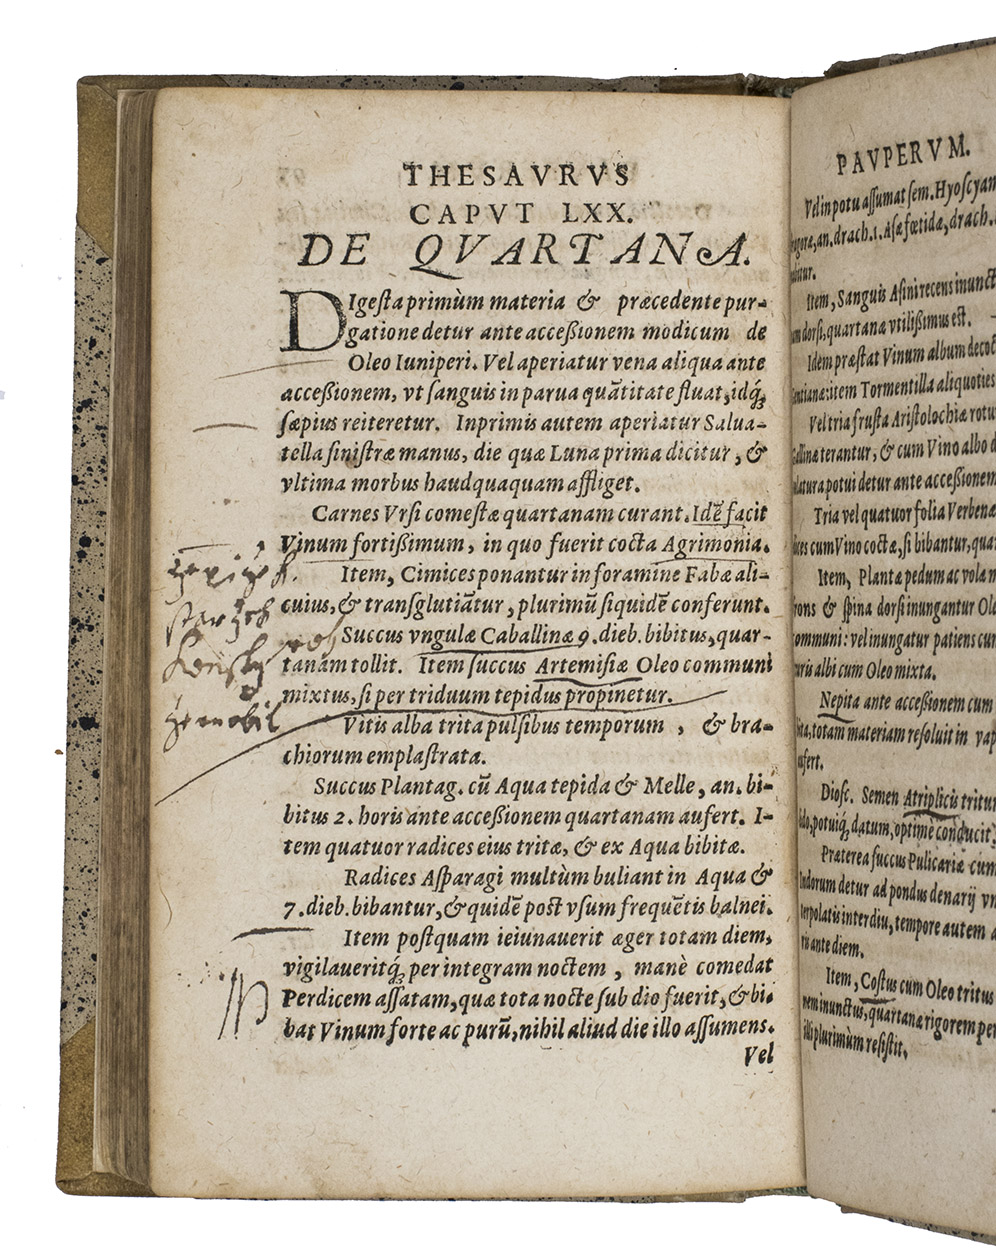 THESAVRVS
CAPVT LXX.
DE QVARTANA.
DIgesta primùm materia & præcedente pur-
gatione detur ante acceßionem modicum de
Oleo Iuniperi. Vel aperiatur vena aliqua ante
acceßionem, vt sanguis in parua quãtitate fluat, idq́;
sæpius reiteretur. Inprimis autem aperiatur Salua-
tella sinistræ manus, die quæ Luna prima dicitur, &
vltima morbus haudquaquam affliget.
Carnes Vrsi comestæ quartanam curant. Idẽ facit
Vinum fortißimum, in quo fuerit cocta Agrimonia.
Item, Cimices ponantur in foramine Fabæ ali-
cuius, & transglutiãtur, plurimũ siquidẽ conferunt.
Succus vngulæ Caballinæ 9. dieb. bibitus, quar-
tanam tollit. Item succus Artemisiæ Oleo communi
mixtus, si per triduum tepidus propinetur.
Vitis alba trita pulsibus temporum , & bra-
chiorum emplastrata.
Succus Plantag. cũ Aqua tepida & Melle, an. bi-
bitus 2. horis ante acceßionem quartanam aufert. I-
tem quatuor radices eius tritæ, & ex Aqua bibitæ.
Radices Asparagi multùm buliant in Aqua &
7. dieb. bibantur, & quidẽ post vsum frequẽtis balnei.
Item postquam ieiunauerit æger totam diem,
vigilaueritq́; per integram noctem , manè comedat
Perdicem assatam, quæ tota nocte sub dio fuerit, & bi-
bat Vinum forte ac purũ, nihil aliud die illo assumens.
Vel
PAVPERVM.
Vel in potu assumat sem. Hyoscyam
an. drach. 1. Asæ fœtidæ, drach.
Item, Sanguis Asini recens inunct
dorsi, quartanæ vtilißimus est.
Idem præstat Vinum album decoct
item Tormentilla aliquoties
Vel tria frusta Aristolochiæ rotu
terantur, & cum Vino albo d
potui detur ante acceßionem
Tria vel quatuor folia Verbenæ
cum Vino coctæ, si bibantur, quar
Item, Plantæ pedum ac volæ m
& spina dorsi inungantur Ole
communi: vel inungatur patiens cum
albi cum Oleo mixta.
Nepita ante acceßionem cum
totam materiam resoluit in vap
Diosc. Semen Atriplicis tritum
potuiq́; datum, optimè conducit.
Præterea succus Pulicariæ cum
detur ad pondus denarij vn
interdiu, tempore autem
ante diem.
Item, Costus cum Oleo tritus
inunctus, quartanæ rigorem per
plurimùm resistit.